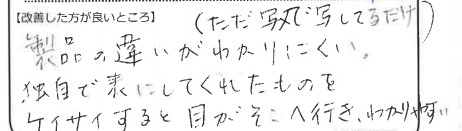 【改善した方が良いところ】
(ただ写メで写してるだけ)
製品の違いがわかりにくい。
独自で表にしてくれたものを
ケイサイすると目がそこへ行き、わかりやすい